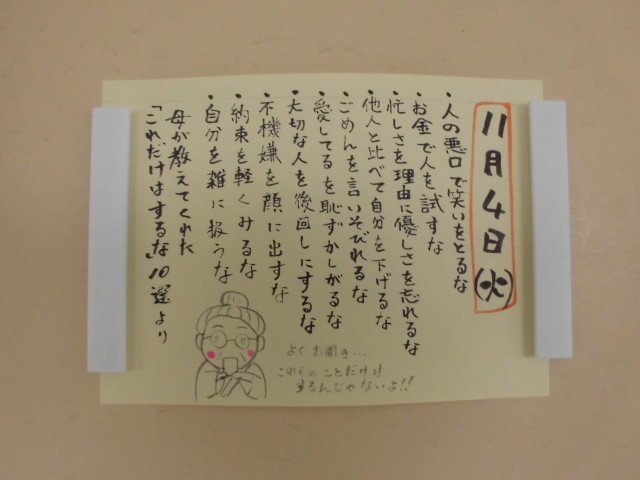 11月4日(火)
・人の悪口で笑いをとるな
・お金で人を試すな
・忙しさを理由に優しさを忘れるな
・他人と比べて自分を下げるな
・ごめんを言いそびれるな
・愛してるを恥ずかしがるな
・大切な人を後回しにするな
・不機嫌を顔に出すな
・約束を軽くみるな
・自分を雑に扱うな
母が教えてくれた
「これだけはするな」10選より
よくお聞き…
これらのことだけは
するんじゃないよ!!